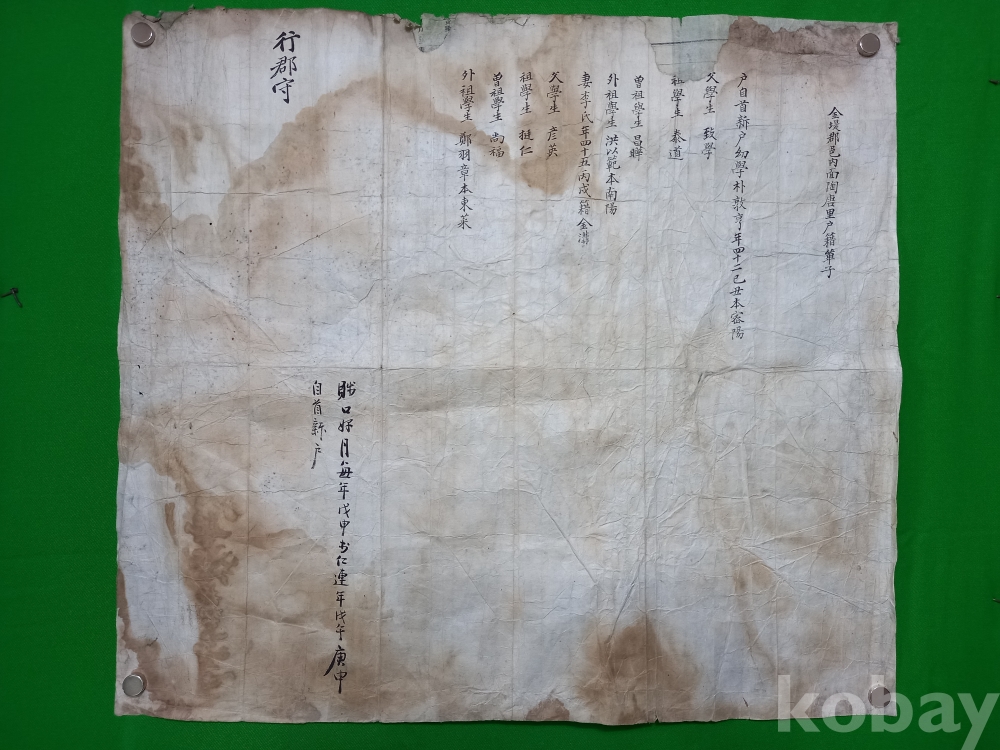 金堤郡邑內面陶唐里戶籍單子
戶自首新戶幼學朴敦亨年四十二己丑本密陽
父學生 致學
祖學生 泰道
曾祖學生 昌曄
外祖學生 洪以範本南陽
妻李氏年四十五丙戌籍金溝
父學生 彦英
祖學生 挺仁
曾祖學生 尙福
外祖學生 鄭羽章本東萊
口 月 年戊申 仁連年戊午庚申
自首新戶
行郡守
kobay